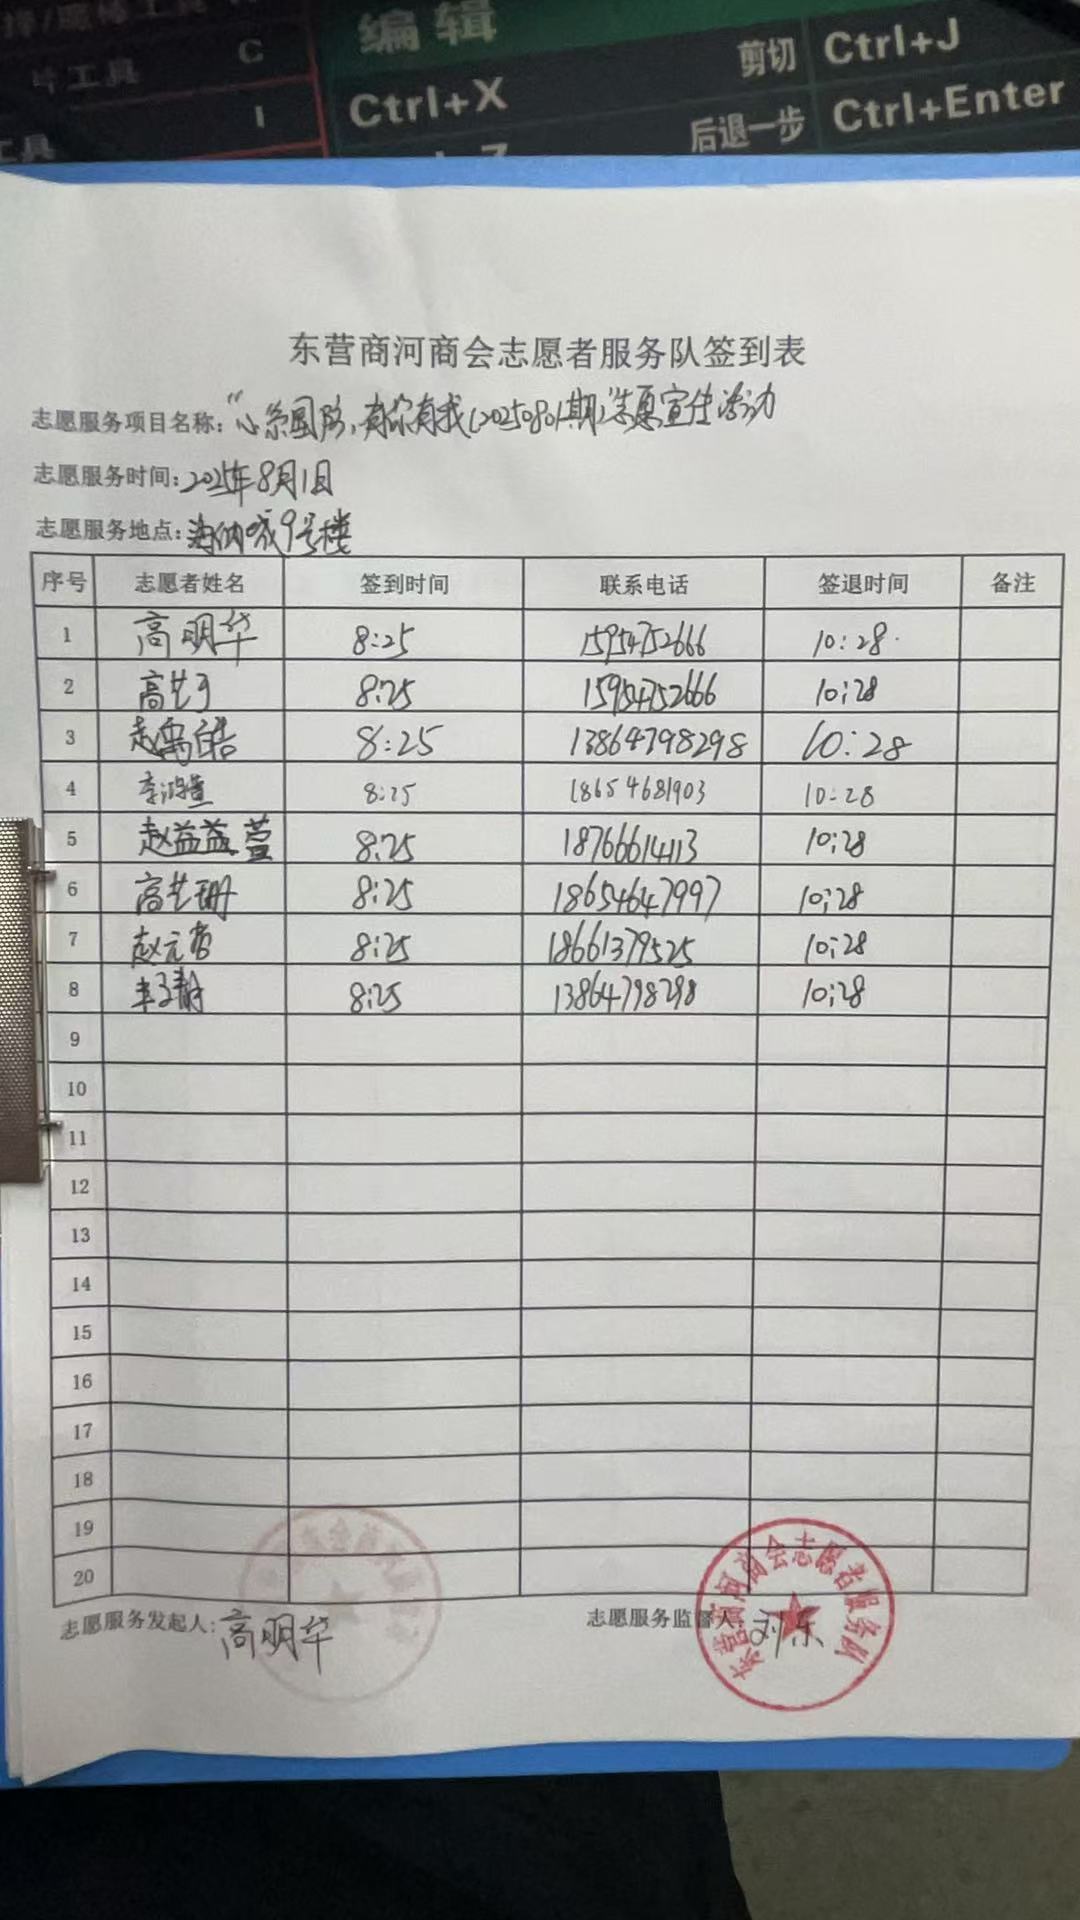 工具 C
工具 I
编辑
Ctrl+X 剪切 Ctrl+J
后退一步 Ctrl+Enter
东营商河商会志愿者服务队签到表
志愿服务项目名称:“心系国防,有你有我(20250801期)志愿宣传活动
志愿服务时间:2025年8月1日
志愿服务地点:海纳城9号楼
序号 志愿者姓名 签到时间 联系电话 签退时间 备注
1 高明华 8:25 15954752666 10:28
2 高艺于 8:25 15954752666 10:28
3 赵禹皓 8:25 13864798298 10:28
4 8:25 18654681903 10:28
5 赵益益 萱 8:25 18766614113 10:28
6 高艺珊 8:25 18654647997 10:28
7 赵元 8:25 18661379525 10:28
8 8:25 13864798298 10:28
9
10
11
12
13
14
15
16
17
18
19
20
志愿服务发起人:高明华 志愿服务监督人:刘东
东营商河商会志愿者服务队